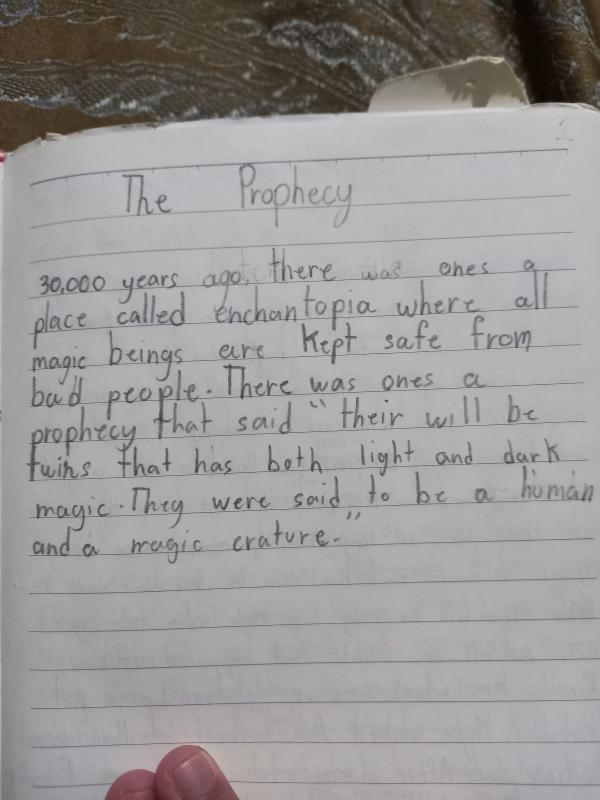 The Prophecy
30,000 years ago, there was ones a
place called enchantopia where all
magic beings are kept safe from
bad people. There was ones a
prophecy that said "their will be
twins that has both light and dark
magic. They were said to be a human
and a magic crature."